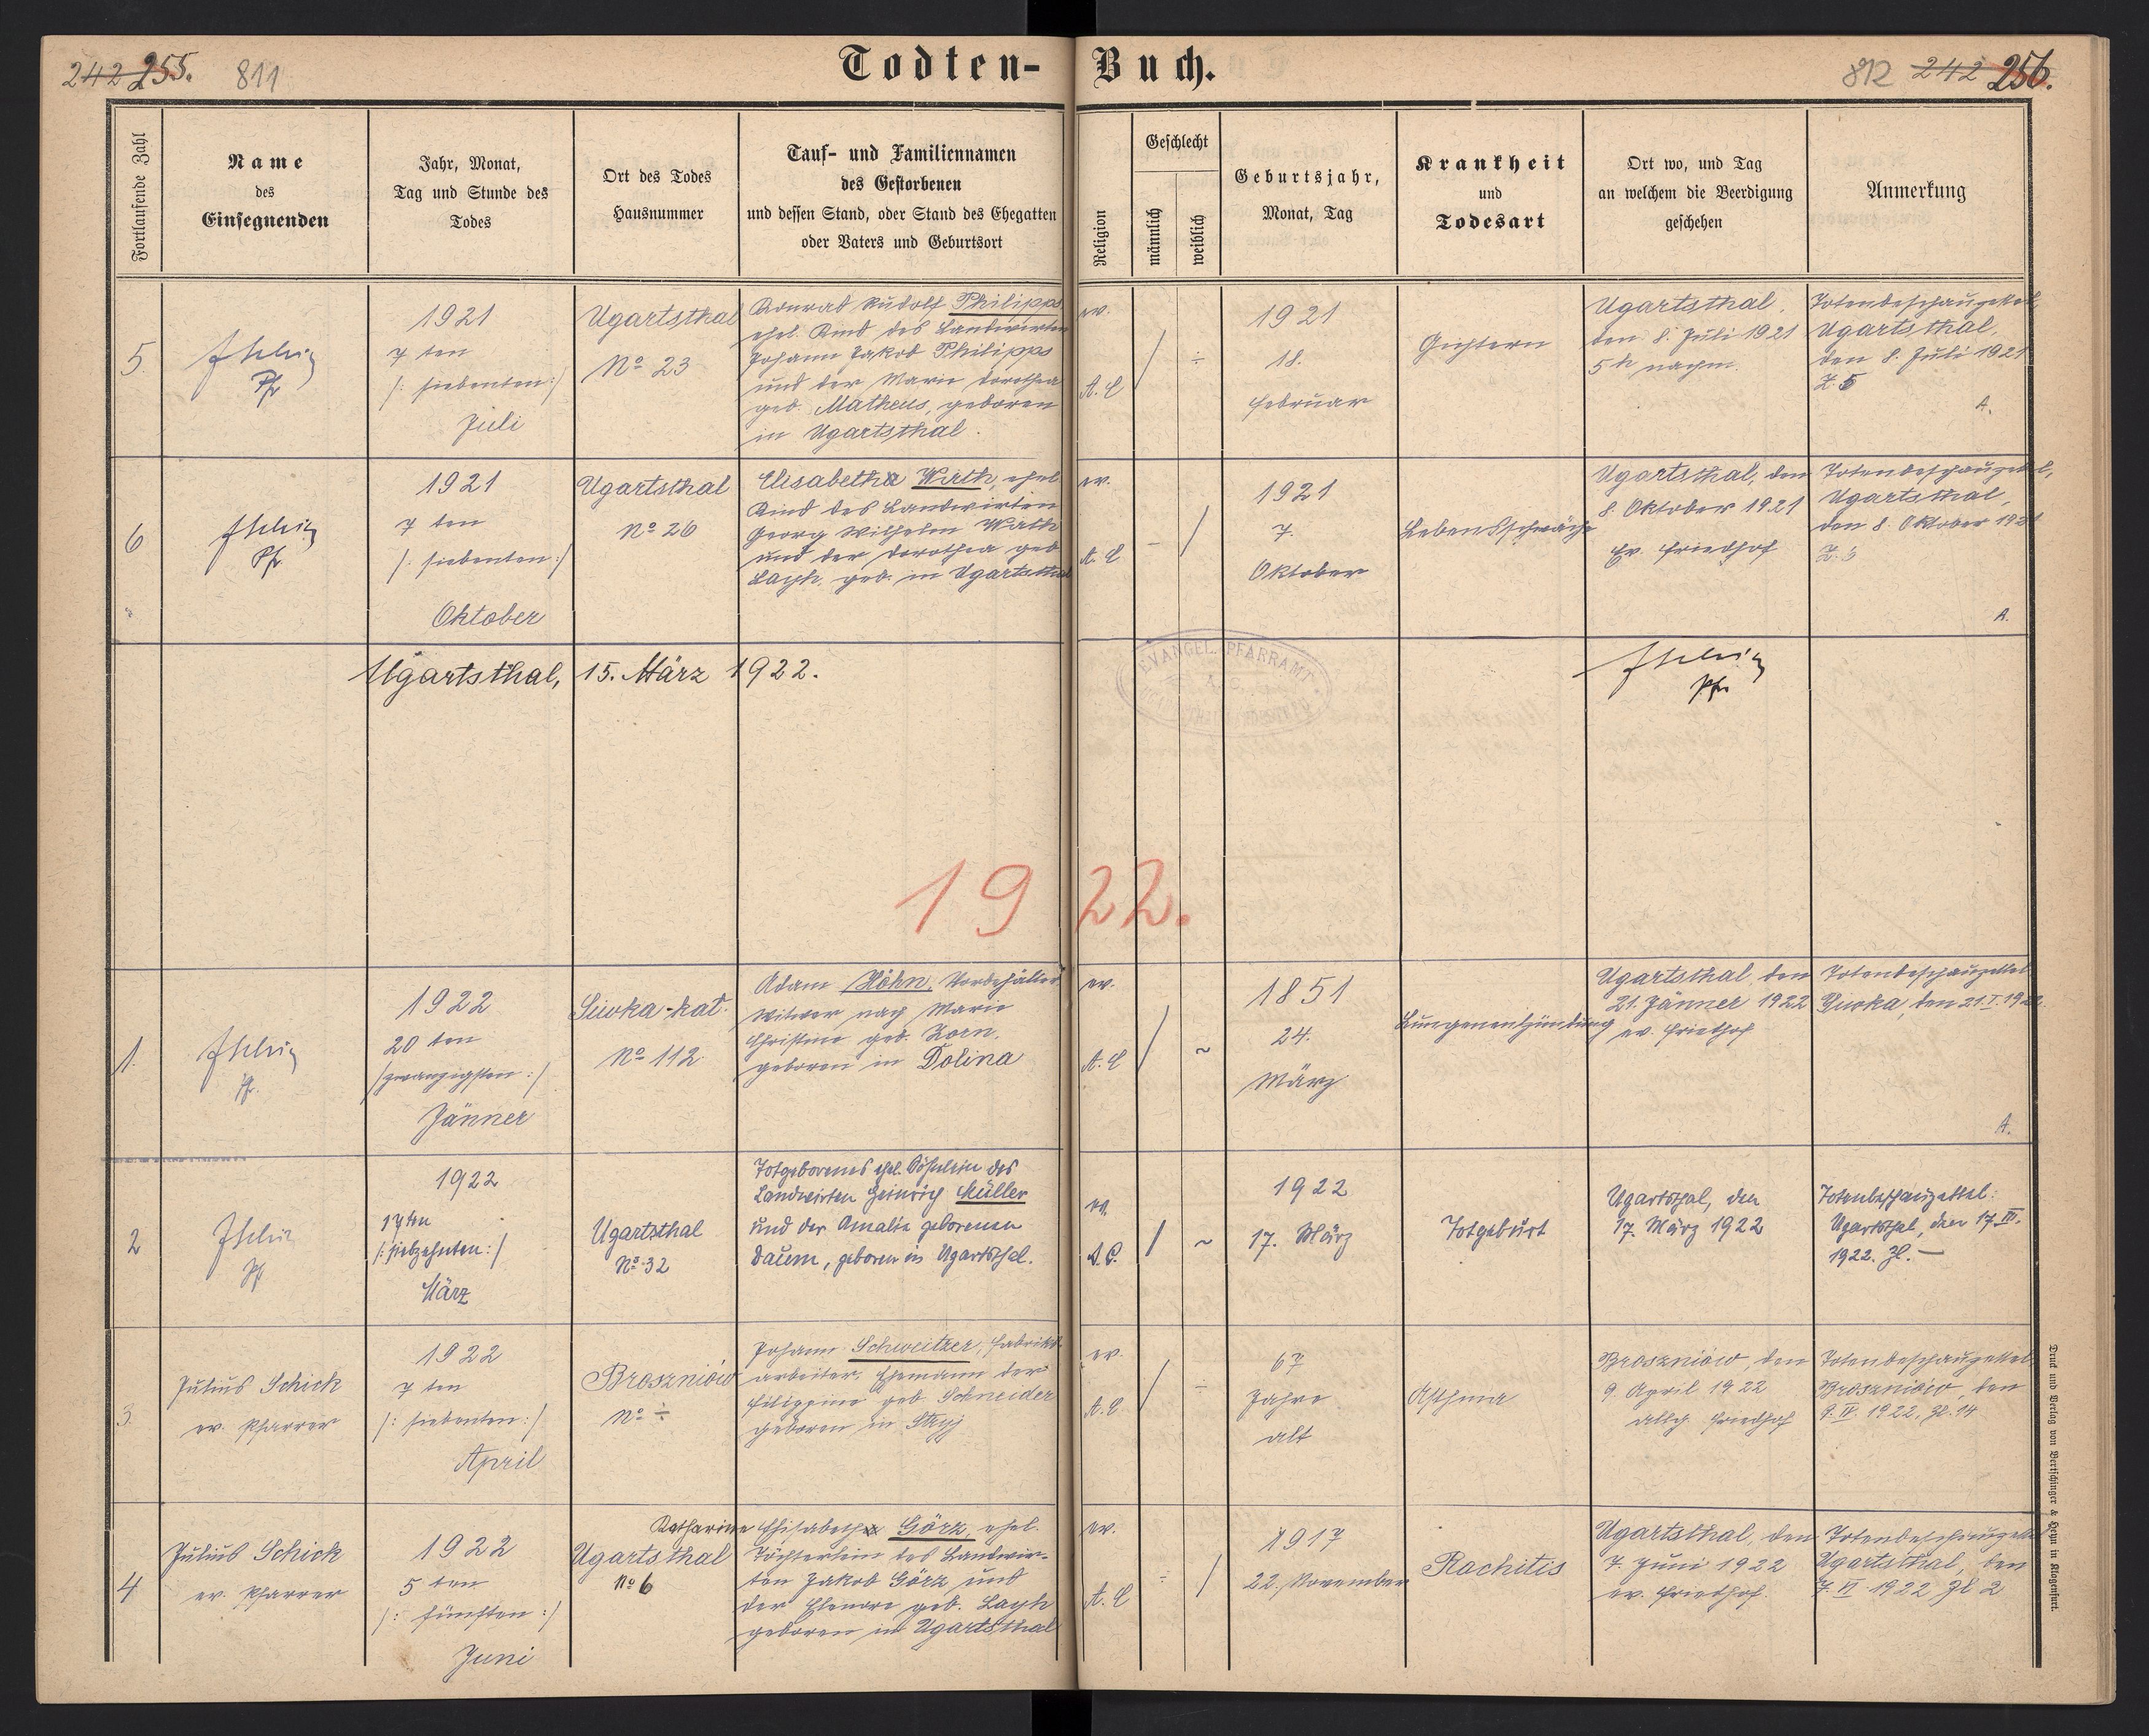 242 255. 811
Todten-Buch.
812 242 256.
Fortlaufende Zahl
Name
des
Einsegnenden
Jahr, Monat,
Tag und Stunde des
Todes
Ort des Todes
Hausnummer
Tauf- und Familiennamen
des Gestorbenen
und dessen Stand, oder Stand des Ehegatten
oder Vaters und Geburtsort
Religion
Geschlecht
männlich
weiblich
Geburtsjahr,
Monat, Tag
Krankheit
und
Todesart
Ort wo, und Tag
an welchem die Beerdigung
geschehen
Anmerkung
5.
Pfr
1921
7 ten
/: siebenten :/
Juli
Ugartsthal
No 23
Konrad Rudolf Philipps
ehel. Kind des Landwirten
Johann Jakob Philipps
und der Marie Dorothea
geb. Matheus, geboren
in Ugartsthal.
ev.
A. C
/
÷
1921
18.
Februar
Gichtern
Ugartsthal,
den 8. Juli 1921
5 h nachm.
Totenbeschauzettel
Ugartsthal,
den 8. Juli 1921
Z. 5
A.
6
Pfr
1921
7 ten
/: siebenten :/
Oktober
Ugartsthal
No 26
Elisabetha Wirth, ehel
Kind des Landwirten
Georg Wilhelm Wirth
und der Dorothea geb
Layh, geb. in Ugartsthal
ev.
A. C
-
/
1921
7.
Oktober
Lebensschwäche
Ugartsthal, den
8. Oktober 1921
Ev. Friedhof
Totenbeschauzettel,
Ugartsthal,
den 8. Oktober 1921
Z. 6
A.
Ugartsthal, 15. März 1922.
EVANGEL. PFARRAMT
Pfr
1922.
1.
Pfr.
1922
20 ten
/zwanzigsten :/
Jänner
Siwka-kat.
No 112
Adam Höhn, Vorbehälter
Witwer nach Marie
Christine geb. Zorn,
geboren in Dolina
ev.
A. C
/
~
1851
24.
März
Lungenentzündung
Ugartsthal, den
21. Jänner 1922
ev. Friedhof
Totenbeschauzettel
Siwka, den 21. I. 1922.
A.
2
Pfr
1922
17 ten
/: siebzehnten :/
März
Ugartsthal
No 32
Totgeborenes ehel. Söhnlein des
Landwirten Heinrich Müller
und der Amalie geborenen
Daum, geboren in Ugartsthal.
ev.
A. C.
/
~
1922
17. März
Totgeburt
Ugartsthal, den
17. März 1922
Totenbeschauzettel:
Ugartsthal, den 17. III.
1922. Zl. —
3.
Julius Schick
ev. Pfarrer
1922
7 ten
/: siebenten :/
April
Broszniów
No ÷
Johann Schweitzer, Fabriks-
arbeiter, Ehemann der
Filippine geb. Schneider
geboren in Stryj
ev.
A. C
/
÷
67
Jahre
alt
Asthma
Broszniów, den
9. April 1922
allg. Friedhof
Totenbeschauzettel
Broszniów, den
9. IV. 1922. Zl. 14
4
Julius Schick
ev. Pfarrer
1922
5 ten
/: fünften :/
Juni
Ugartsthal
No 6
Katharine Elisabetha Görz, ehel.
Töchterlein des Landwir-
ten Jakob Görz und
der Elenore geb. Layh
geboren in Ugartsthal
ev.
A. C
÷
/
1917
22. November
Rachitis
Ugartsthal, den
7. Juni 1922
ev. Friedhof.
Totenbeschauzettel
Ugartsthal, den
7. VI 1922 Zl 2
Druck und Verlag von Bertschinger & Heyn in Klagenfurt.